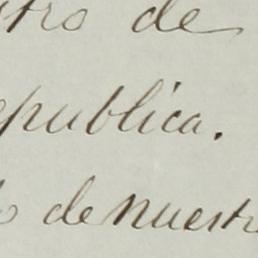 tro de
epublica.
o de nuestr